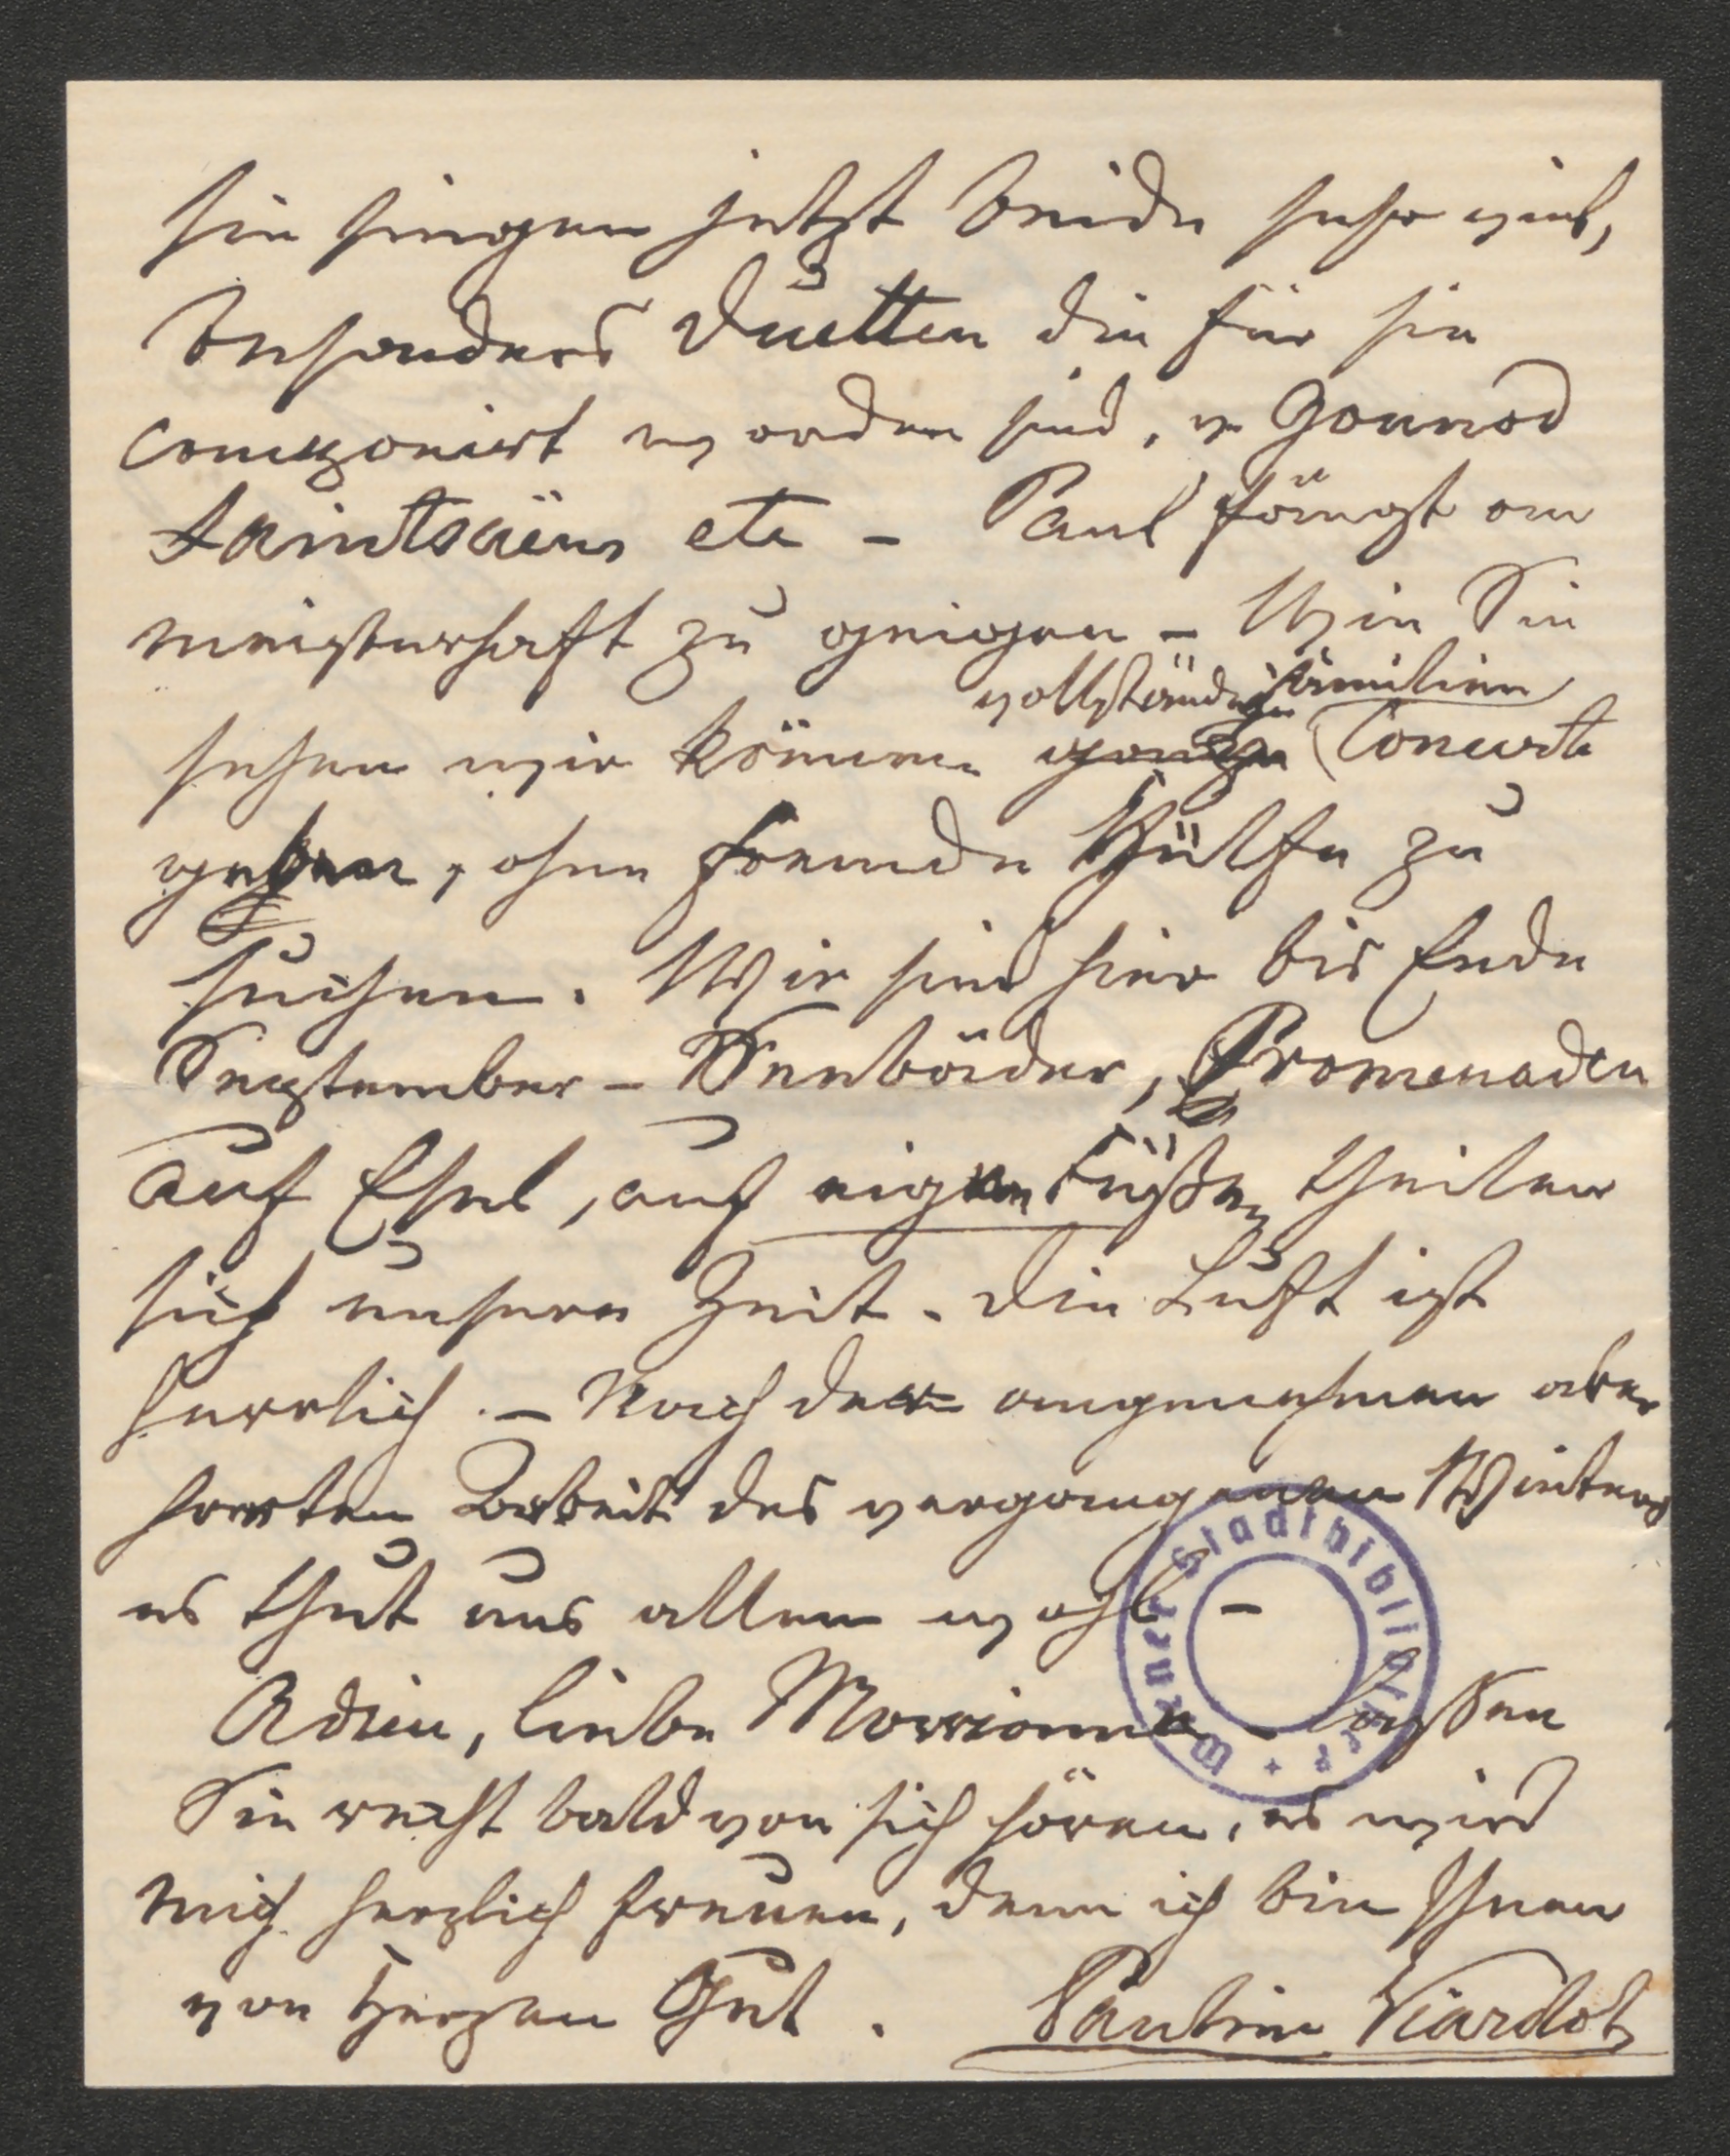 sie singen jetzt beide sehr viel,
besonders Duetten die für sie
componirt worden sind, v Gounod
Saintsäens etc – Paul fängt an
meisterhaft zu geigen – Wie Sie
vollständige familien
sehen wir können ganze Concerte
geben, ohne fremde Hülfe zu
suchen. Wir sind hier bis Ende
September – Seebäder, Promenaden
auf Esel, auf eignen Füßen theilen
sich unsere Zeit. Die Luft ist
herrlich. – Nach der angenehmen aber
harten Arbeit des vergangenen Winters
es thut uns allen wohl –
Adieu, liebe Marianne – lassen
Sie recht bald von sich hören, es wird
mich herzlich freuen, denn ich bin Ihnen
von Herzen Gut. Pauline Viardot
Wiener Stadtbibliothek +